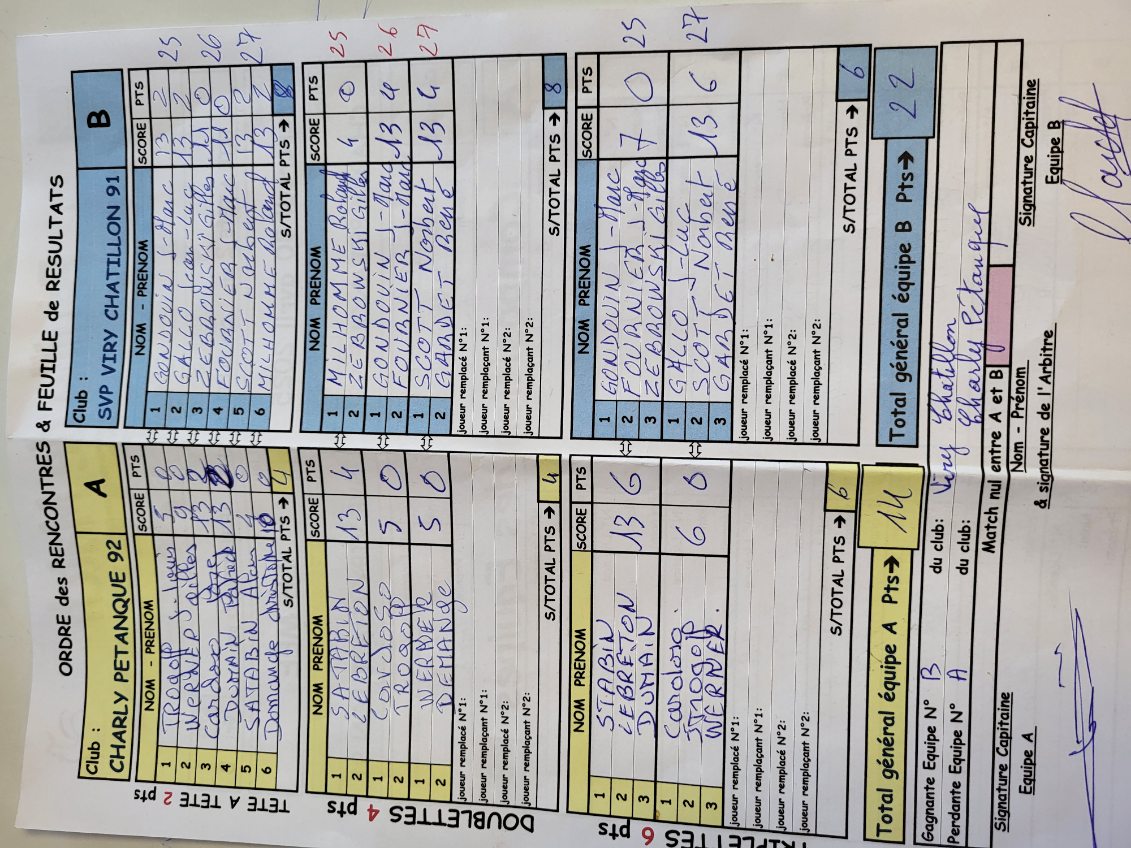 ORDRE des RENCONTRES & FEUILLE de RESULTATS
Club :
CHARLY PETANQUE 92
A
Club :
SVP VIRY CHATILLON 91
B
NOM - PRENOM SCORE PTS
NOM - PRENOM SCORE PTS
TETE A TETE 2 pts
1 TROGOFF J. Louis 5 0
1 GONDOUIN J-Marc 13 2 25
2 WERNER Gilles 9 0
2 GALLO Jean-Luc 13 2
3 Cardoso 13 2
3 ZEBROWSKI Gilles 11 0 26
4 DUMAIN Patrick 13 2
4 FOURNIER J-Marc 0
5 SATABIN Alain 4 0
5 SCOTT Norbert 13 2 27
6 Demange Christophe 10 0
6 MILHOMME Roland 13 2
S/TOTAL PTS → 4
S/TOTAL PTS → 8
DOUBLETTES 4 pts
NOM PRENOM SCORE PTS
NOM PRENOM SCORE PTS
1 SATABIN 13 4
2 LEBRETON
1 MILHOMME Roland 4 0 25
2 ZEBROWSKI Gilles
1 5 0
2 TROGOFF
1 GONDOUIN J-Marc 13 4 26
2 FOURNIER J-Marc
1 WERNER 5 0
2 DEMANGE
1 SCOTT Norbert 13 4 27
2 GARDET René
joueur remplacé N°1:
joueur remplaçant N°1:
joueur remplacé N°2:
joueur remplaçant N°2:
joueur remplacé N°1:
joueur remplaçant N°1:
joueur remplacé N°2:
joueur remplaçant N°2:
S/TOTAL PTS → 4
S/TOTAL PTS → 8
TRIPLETTES 6 pts
NOM PRENOM SCORE PTS
NOM PRENOM SCORE PTS
1 STABIN 13 6
2 LEBRETON
3 DUMAIN
1 GONDOUIN J-Marc 7 0 25
2 FOURNIER J-Marc
3 ZEBROWSKI Gilles
1 Cardoso 6 0
2 Trogoff
3 WERNER
1 GALLO J-Luc 13 6 27
2 SCOTT Norbert
3 GARDET René
joueur remplacé N°1:
joueur remplaçant N°1:
joueur remplacé N°2:
joueur remplaçant N°2:
joueur remplacé N°1:
joueur remplaçant N°1:
joueur remplacé N°2:
joueur remplaçant N°2:
S/TOTAL PTS → 6
S/TOTAL PTS → 6
Total général équipe A Pts→ 14
Total général équipe B Pts→ 22
Gagnante Equipe N° B du club: Viry Chatillon
Perdante Equipe N° A du club: Charly Pétanque
Match nul entre A et B
Signature Capitaine
Equipe A
Nom - Prénom
& signature de l'Arbitre
Signature Capitaine
Equipe B